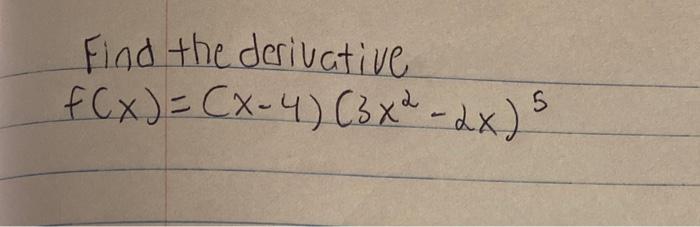 Find the derivative
f(x)=(x-4)(3x² -2x)⁵